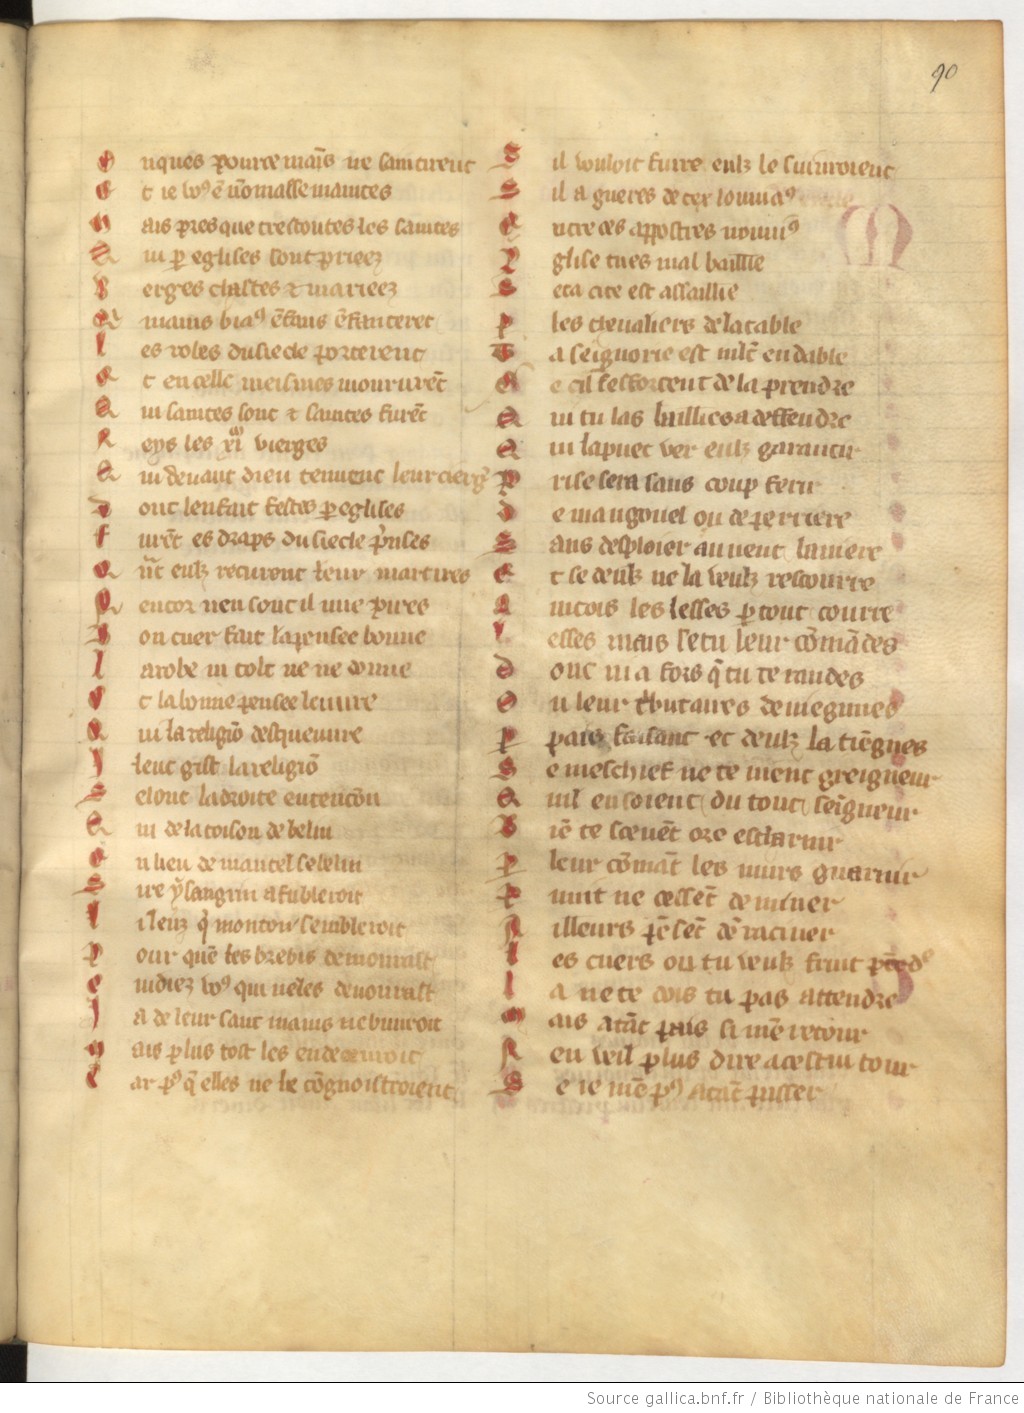 90
O nques pour ce mais ne saintirent
E t ie vos en nommasse maintes
M ais presque trestoutes les saintes
Q ui par eglises sont priees
V erges chastes et mariees
Q ui mains biaus enfans enfanterent
L es robes du siecle porterent
E t en celles meismes moururent
Q ui saintes sont et saintes furent
N eys les xi vierges
Q ui devant dieu tenuent leur cierges
D ont len fait festes par eglises
F urent es draps du siecle prises
Q nt eulz recurent leur martires
N encor nen sont il mie pires
B on cuer fait la pensee bonne
L a robe ni tolt ne ne donne
E t la bonne pensee leuure
Q ui la religion desqueuure
I leuc gist la religion
S elonc la droite entencion
Q ui de la toison de belin
E n lieu de mantel sebelin
S ire ysangrin afubleroit
L i leuz qui mouton sembleroit
P our quen les brebis demourast
C uidiez vos qui ne les devourast
J a de leur sanc mains ne buuroit
M ais plus tost les en deceuroit
C ar puis quelles ne le congnoistroient
S il vouloit fuire eulz le suiuroient
S il a gueres de tex louuiaus
E ntre ces appostres nouuiaus
E glise tu es mal baillie
S e ta cite est assaillie
P les chevaliers de la table
T a seignorie est mlt endable
S e cil sefforcent de la prendre
Q ui tu las baillies a deffendre
Q ui la puet ver eulz garantir
P rise sera sans coup ferir
D e mangonel ou de perriere
S ans desploier au vent baniere
E t se deulz ne la veulz rescourre
A incois les lesses par tout courre
L esses mais se tu leur commandes
D onc ni a fors que tu te rendes
O u leur tributaires deviegnes
P pais faisant et deulz la tiengnes
S e meschief ne te vient greigneur
Q uil en soient du tout seigneur
B ien te scevent ore escharnir
P leur comant les murs guarnir
P nuit ne cessent de miner
A illeurs penssent denraciner
L es cuers ou tu veulz fruit prendre
L a ne te dois tu pas attendre
M ais atant pais si men retour
N en veil plus dire a cestui tour
S e ie men puis atant passer
Source gallica.bnf.fr / Bibliothèque nationale de France